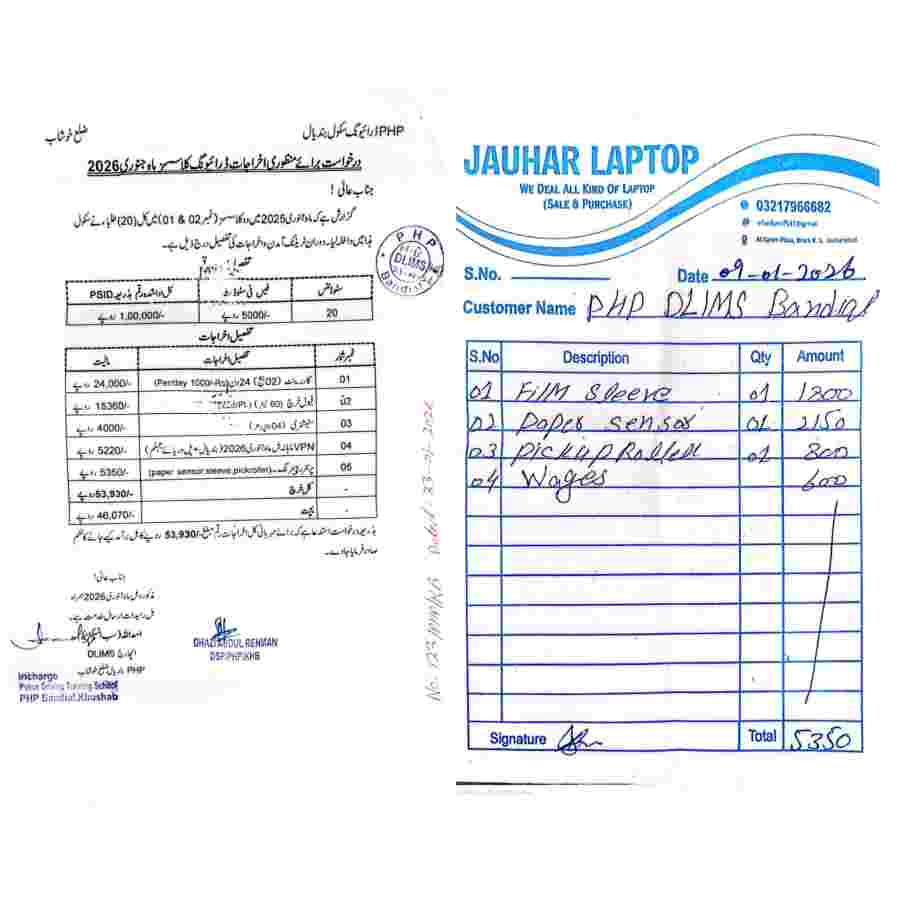 PHP ڈرائیونگ سکول بندیال
ضلع خوشاب
درخواست برائے منظوری اخراجات ڈرائیونگ کلاسسز ماہ جنوری 2026
جناب عالی !
گزارش ہے کہ ماہ جنوری 2025 میں دو کلاسسز (نمبر 02 & 01) میں کل (20) طلباء نے سکول
ہذا میں داخلہ لیا۔ دوران ٹریننگ آمدن و اخراجات کی تفصیل درج ذیل ہے۔
PHP
DLIMS
Bandial
سٹوڈنٹس فیس فی سٹوڈنٹ کل ادا شدہ رقم بذریعہ PSID
20 5000/- روپے 1,00,000/- روپے
تفصیل اخراجات
نمبر شمار تفصیل اخراجات مالیت
01 24 (Perday 1000/-Rs) 24,000/- روپے
02 15360/- روپے
03 سٹیشنری 4000/- روپے
04 VPN ماہ جنوری 2026 5220/- روپے
05 (paper sensor,sleeve,pickroller) 5350/- روپے
- کل خرچ 53,930/- روپے
- بچت 46,070/- روپے
بذریعہ درخواست استدعا ہے کہ برائے مہربانی کل اخراجات رقم مبلغ 53,930/- روپے کا بل برآمد کیے جانے کا حکم
صادر فرمایا جاوے۔
جناب عالی!
مذکورہ بل ماہ جنوری 2026 ہمراہ
بل رسیدات ارسال خدمت ہے۔
انچارج DLIMS
PHP بندیال ضلع خوشاب
Incharge
Police Driving Training School
PHP Bandial, Khushab
GHAZI ABDUL REHMAN
DSP/PHP/KHB
JAUHAR LAPTOP
WE DEAL ALL KIND OF LAPTOP
(SALE & PURCHASE)
03217966682
S.No.
Date 09-01-2026
Customer Name PHP DLIMS Bandial
S.No Description Qty Amount
01 Film Sleeve 01
02 Paper sensor 01 2150
03 Pickup Roller 01 800
04 Wages 600
Signature
Total 5350